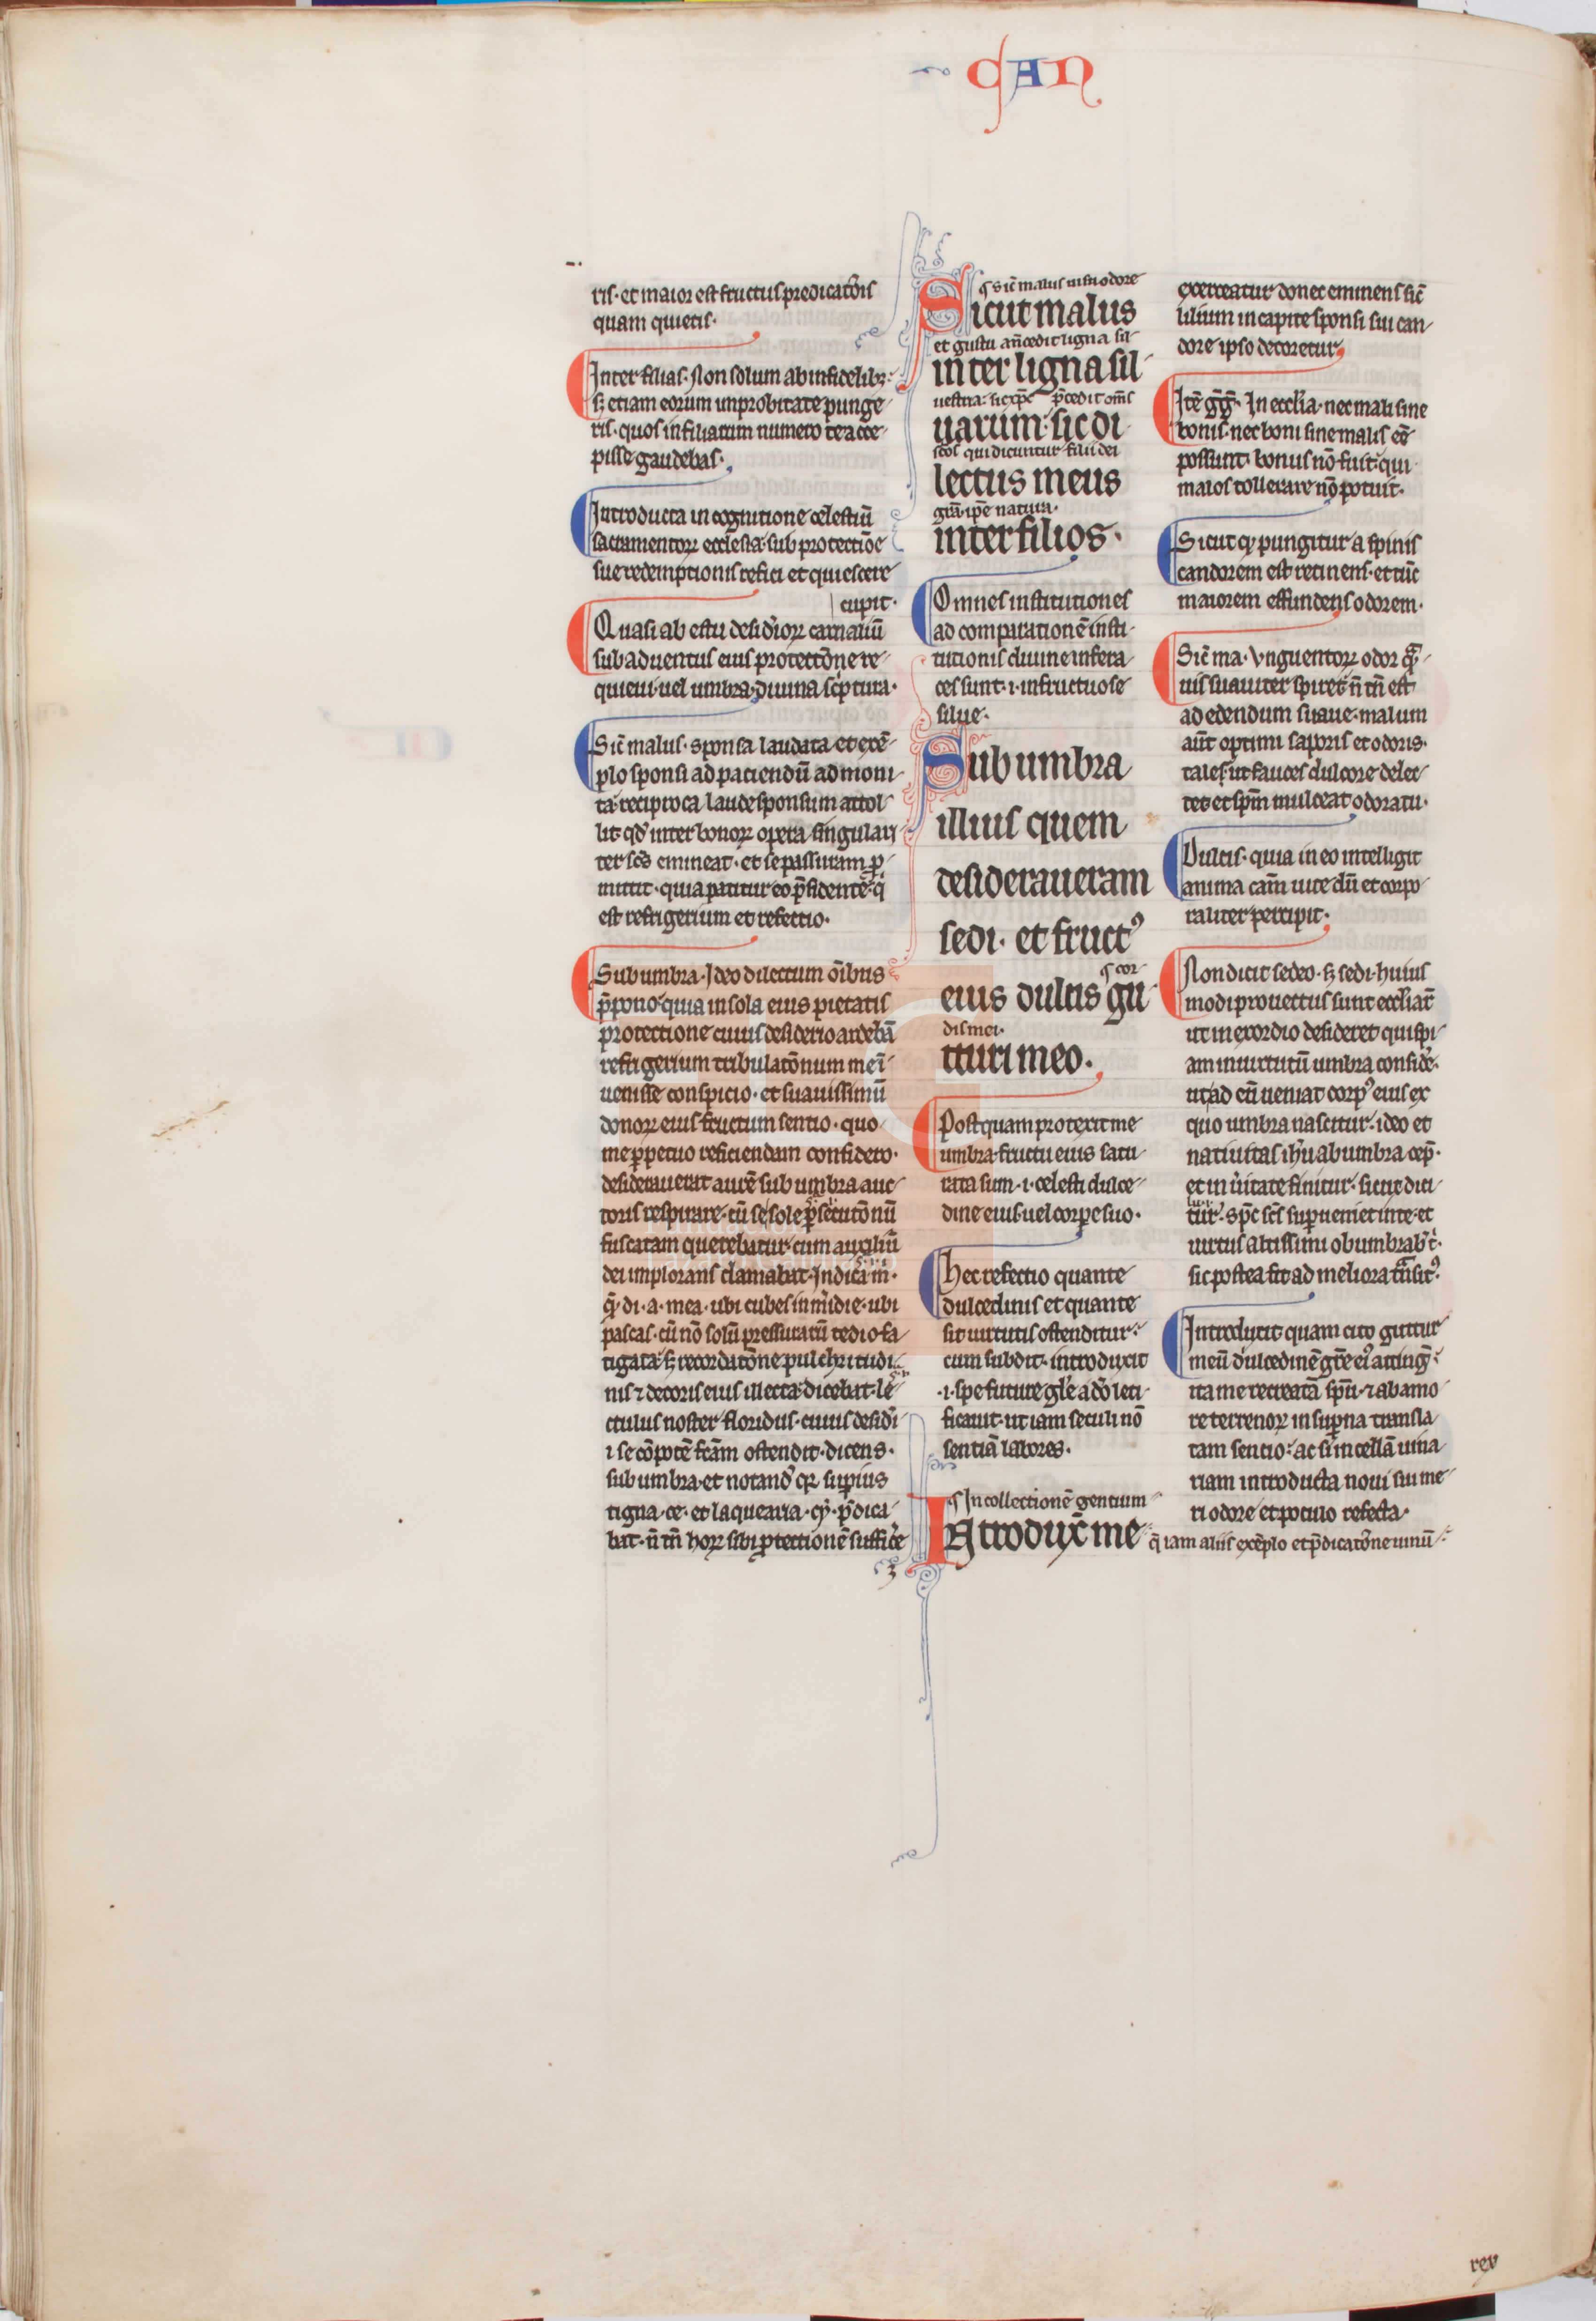 CAN
ris. et maior est fructus predicatõis
quam quietis.
Inter filias. Non solum ab infidelibꝫ.
sꝫ etiam eorum improbitate punge
ris. quos in filiarum numero te acce
pisse gaudebas.
Introducta in cognitione celestiũ
sacramentoꝝ ecclesia. sub protectiõe
sue redemptionis refici et quiescere
cupit.
Quasi ab estu desid'ioꝝ carnaliũ
sub aduentus eius protectõne re
quieui. uel umbra. diuina sc'ptura.
Sic̃ malus. sponsa laudata et exẽ
plo sponsi ad paciendũ admoni
ta. reciproca laude sponsum attol
lit qđ inter bonoꝝ opera singulari
ter sc̃s emineat. et se passuram ꝓ
mittit. quia patitur eo p̃sidente. q̇
est refrigerium et refectio.
Sub umbra. Ideo dilectum oĩbus
p̃pono. quia in sola eius pietatis
protectione cuius desiderio ardebã
refrigerium tribulatõnum me ĩ
uenisse conspicio. et suauissimũ
donoꝝ eius fructum sentio. quo
me ꝑpetuo reficiendam confidero.
desiderauerat aurẽ sub umbra auc
toris respirare. cũ se sole p̃secutõnũ
fuscatam querebatur. cum auxiliũ
dei implorans clamabat. Indica m.
q̃. di. a. mea. ubi cubes in m'idie. ubi
pascas. cũ nõ solũ pressurarũ tedio fa
tigata. sꝫ recordatõne pulchritudi
nis ⁊ decoris eius illecta dicebat. le
ctulus noster floridus. cuius desid'i
i se cõpotẽ fc̃am ostendit. dicens.
sub umbra. et notand' qꝛ supius
tigna. ce. et laquearia. cy. p̃dica
bat. ñ tñ hoꝝ sibi ꝓtectionẽ suffic'e
¶ Sic̃ malus uisu odore
Sicut malus
et gustu añcedit ligna sil
inter ligna sil
uestria. sic xp̃c p̃cedit om̃s
uarum. sic di
sc̃os qui dicuntur filii dei
lectus meus
grã. ip̃e natura.
inter filios.
Omnes institutiones
ad comparationẽ insti
tutionis diuine infera
ces sunt. i. infructuose
silue.
Sub umbra
illius quem
desideraueram
sedi. et fruct⁹
¶ cor
eius dulcis gu
dis mei.
tturi meo.
Postquam protexit me
umbra. fructu eius satu
rata sum. i. celesti dulce
dine eius. uel corpe suo.
Hec refectio quante
dulcedinis et quante
sit uirtutis ostenditur.
cum subdit. introduxit
.i. spe future gl'e a dõ leti
ficauit. ut iam seculi nõ
sentiã labores.
¶ In collectionẽ gentium
Introdux̃ me
q̃ iam aliis exẽplo et p̃dicatõne uinũ
exerceatur donec eminens sic̃
lilium in capite sponsi sui can
dore ipso decoretur.
Itẽ gg̃. In eccl'ia. nec mali sine
bonis. nec boni sine malis eẽ
possunt. bonus nõ fuit. qui
malos tollerare nõ potuit.
Sicut qꝫ pungitur a spinis
candorem est retinens. et tũc
maiorem effundens odorem.
Sic̃ ma. Vnguentoꝝ odor q̃
uis suauiter spiret. ñ tñ est
ad edendum suaue. malum
aũt optimi saporis et odoris.
tales. ut fauces dulcore delec
tet. et sp̃m mulceat odoratu.
Dulcis. quia in eo intelligit
anima cam̃ uite dũ et corpo
raliter percipit.
Non dicit sedeo. sꝫ sedi. huius
modi prouectus sunt eccl'iar̃
ut in exordio desideret quispi
am in uirtutũ umbra consid'e.
ut ad eũ ueniat corp⁹ eius ex
quo umbra nascitur. ideo et
natiuitas ih'u ab umbra cep̃.
et in u'itate finitur. sicut dici
tur. sp̃c sc̃s supueniet in te. et
uirtus altissimi obumbrab̃ t'.
sic postea fit ad meliora tr̃nsit⁹.
Introduxit quam cito guttur
meũ dulcedinẽ grẽ ei⁹ atting̃.
ita me recreatã sp̃u. ⁊ ab amo
re terrenoꝝ in supna transla
tam sentio. ac si in cellã uina
riam introducta noui sui me
ri odore et potulo refecta.
rev